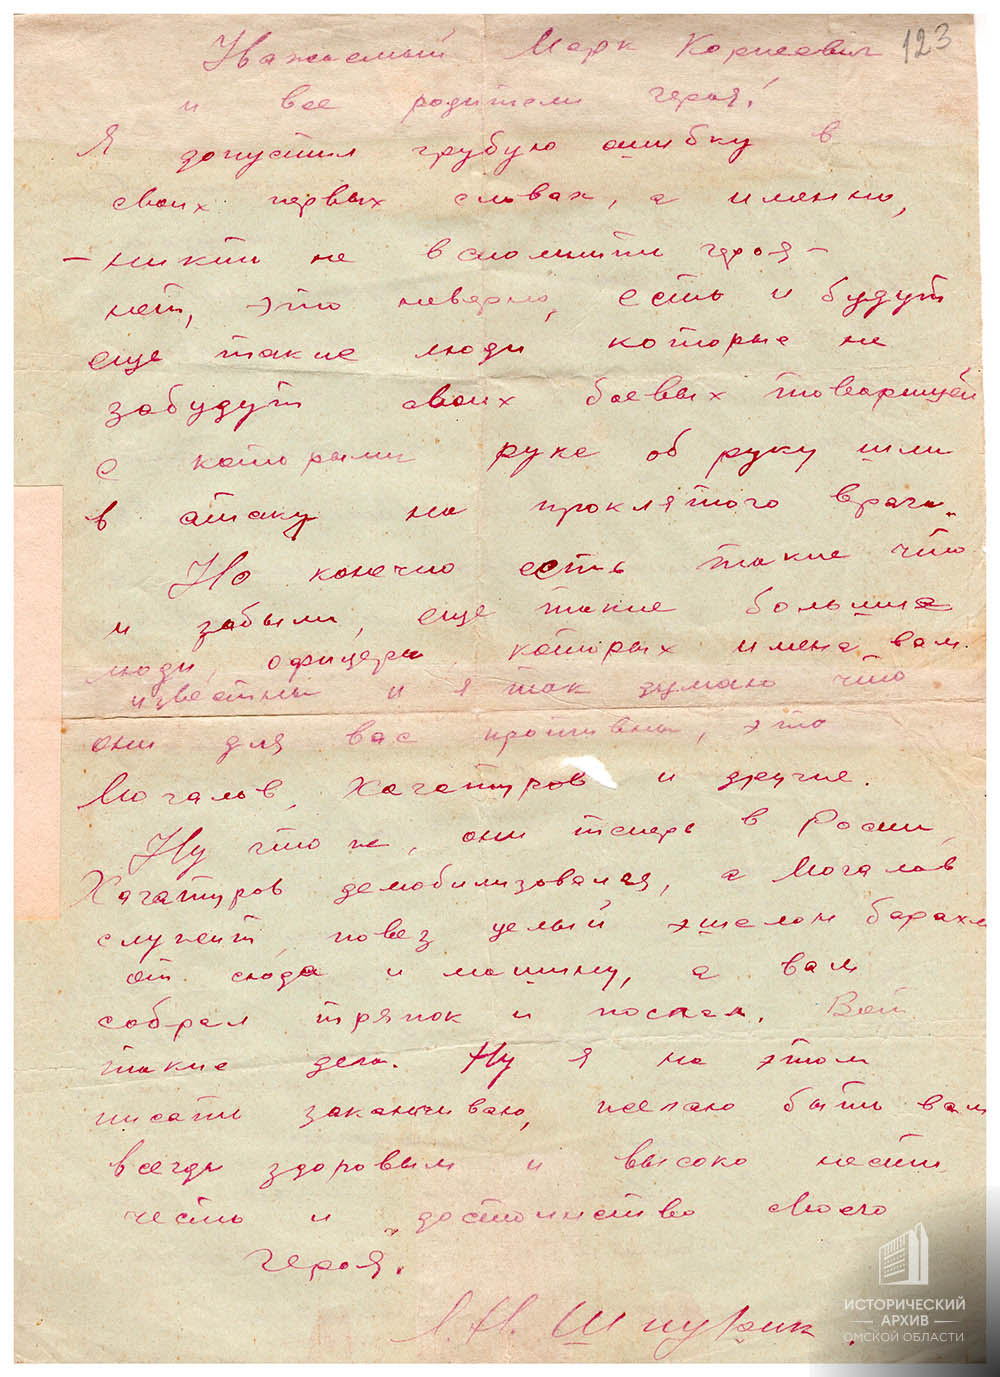 123
Уважаемый Марк Корнеевич
и все родители героя!
Я допустил грубую ошибку в
своих первых словах, а именно,
– никто не вспомнит героя –
нет, это неверно, есть и будут
еще такие люди которые не
забудут своих боевых товарищей
с которыми руке об руку шли
в атаку на проклятого врага.
Но конечно есть такие что
и забыли, еще такие большие
люди, офицеры, которых имена вам
известны и я так думаю что
они для вас противны, это
Могалов, Хачатуров и другие.
Ну что ж, они теперь в России,
Хачатуров демобилизовался, а Могалов
служит, повез целый эшелон барахла
от сюда и машину, а вам
собрал тряпок и послал. Вот
такие дела. Ну я на этом
писать заканчиваю, желаю быть вам
всегда здоровым и высоко нести
честь и достоинство своего
героя.
Шпурик.
ИСТОРИЧЕСКИЙ
АРХИВ
ОМСКОЙ ОБЛАСТИ